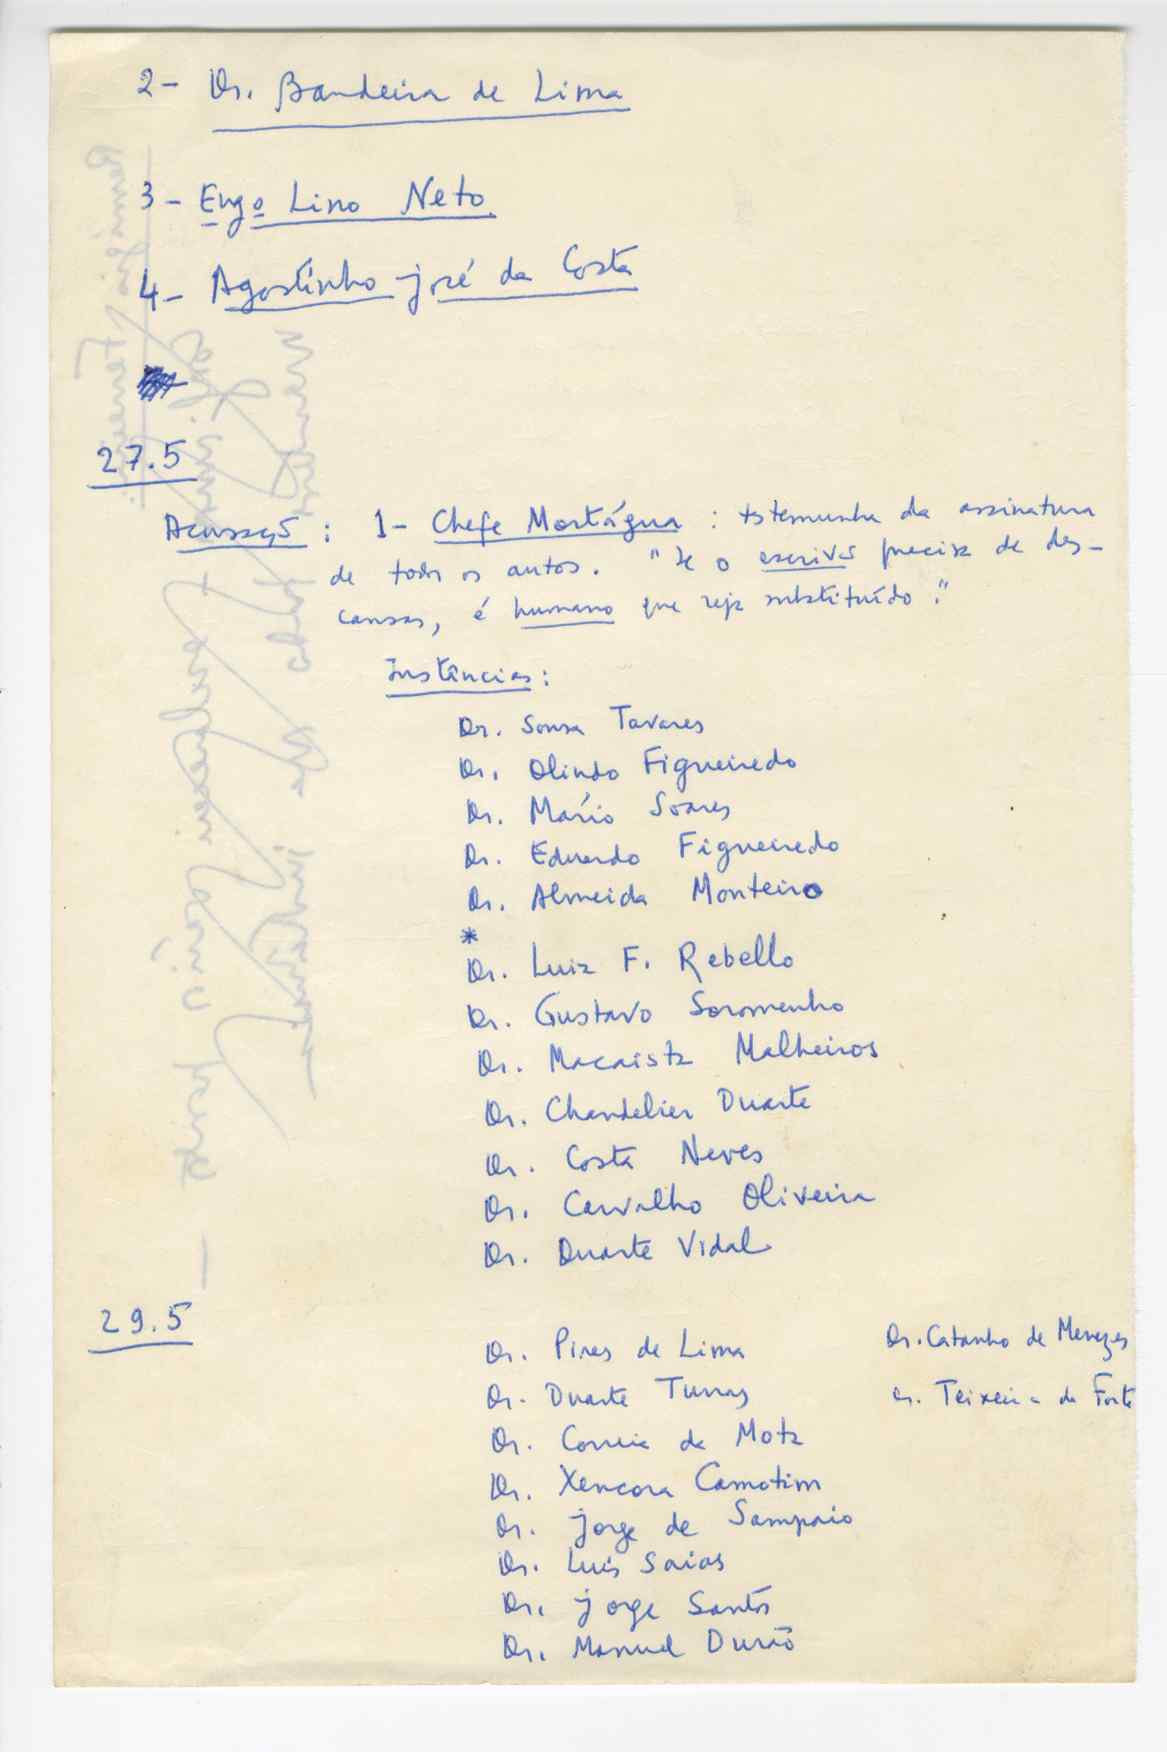 2- Dr. Bandeira de Lima
3- Engo Lino Neto
4- Agostinho José da Costa
27.5
Acusação: 1- Chefe Mortágua: testemunha da assinatura
de todos os autos. "Se o escrivão precisa de des-
cansar, é humano que seja substituído."
Instâncias:
Dr. Sousa Tavares
Dr. Olindo Figueiredo
Dr. Mário Soares
Dr. Eduardo Figueiredo
Dr. Almeida Monteiro
*
Dr. Luiz F. Rebello
Dr. Gustavo Soromenho
Dr. Macaista Malheiros
Dr. Chandelier Duarte
Dr. Costa Neves
Dr. Carvalho Oliveira
Dr. Duarte Vidal
29.5
Dr. Pires de Lima Dr. Catanho de Menezes
Dr. Duarte Dr. Teixeira da
Dr. Correia da Mota
Dr. Xencora Camotim
Dr. Jorge de Sampaio
Dr. Luis Saias
Dr. Jorge Santos
Dr. Manuel Durão